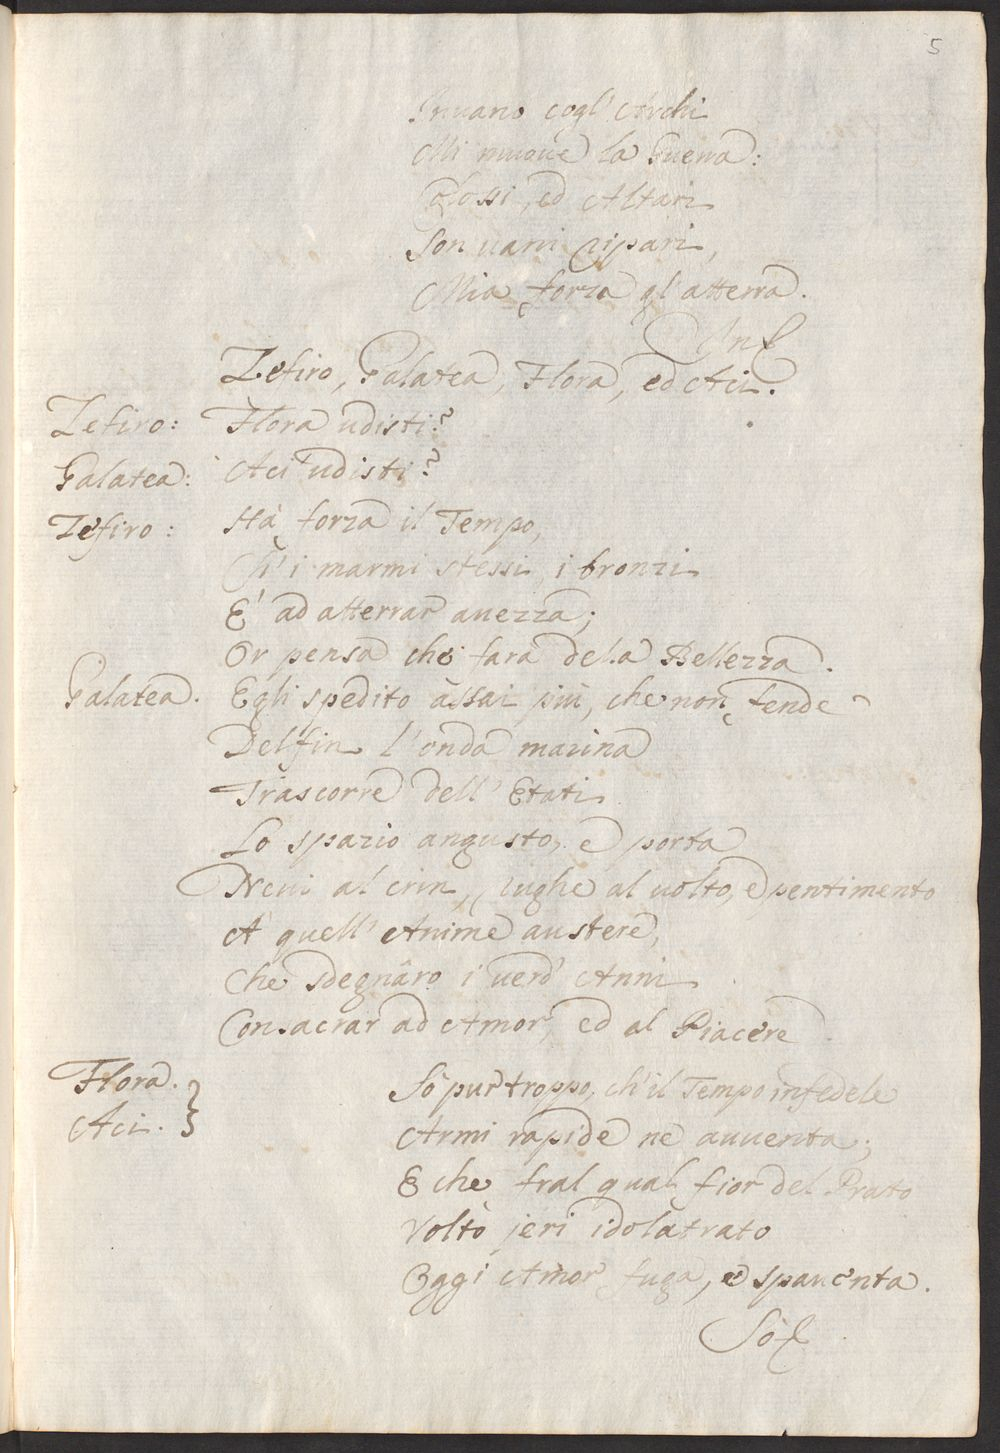 5
Inuano cogl' Archi
Mi muoue la Guerra:
Colossi, ed Altari
Son uani ripari,
Mia forza gl'atterra.
In&
Zefiro, Galatea, Flora, ed Aci.
Zefiro: Flora udisti?
Galatea: Aci udisti?
Zefiro: Hà forza il Tempo,
Ch' i marmi stessi, i bronzi
E' ad atterrar auezza;
Or pensa che farà dela Bellezza.
Galatea. Egli spedito assai più, che non fende
Delfin l'onda marina
Trascorre dell' Etati
Lo spazio angusto, e porta
Neui al crin, rughe al uolto, e pentimento
A quell' Anime austere,
Che sdegnâro i uerd' Anni
Consacrar ad Amor, ed al Piacere
Flora.
Aci. } Sò pur troppo, ch'il Tempo infedele
Armi rapide ne auuenta;
E che fral qual fior del Prato
Volto jeri idolatrato
Oggi Amor fuga, e spauenta.
Sò&